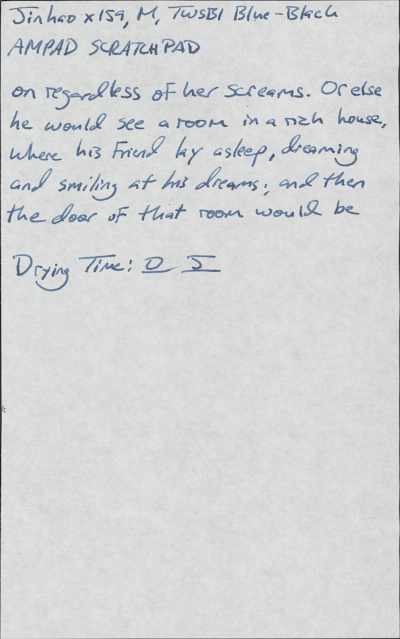 Jinhao x159, M, TWSBI Blue-Black
AMPAD SCRATCH PAD
on regardless of her screams. Or else
he would see a room in a rich house,
where his friend lay asleep, dreaming
and smiling at his dreams; and then
the door of that room would be
Drying Time: 0 5